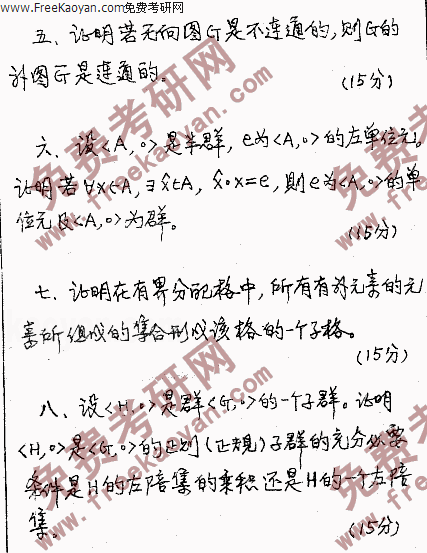 www.FreeKaoyan.com/免费考研网
五、证明若无向图G是不连通的,则G的
补图G̅是连通的。
(15分)
六、设<A,∘>是半群,e为<A,∘>的左单位元。
证明若∀x∈A,∃x̂∈A, x̂∘x=e,则e为<A,∘>的单
位元及<A,∘>为群。
(15分)
七、证明在有界分配格中,所有有补元素的元
素所组成的集合形成该格的一个子格。
(15分)
八、设<H,∘>是群<G,∘>的一个子群。证明
<H,∘>是<G,∘>的正则(正规)子群的充分必要
条件是H的左陪集的乘积还是H的一个左陪
集。
(15分)
免费考研网
freekaoyan.com
免费考研网
www.freekaoyan.com
免费考研网
www.freekaoyan.com
免费考研网